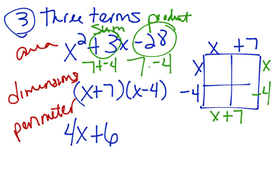 ③ three terms
sum product
area x² + 3x - 28
7 + -4 7 · -4
dimensions (x+7)(x-4)
perimeter 4x+6
x +7
x x
-4 -4
x + 7